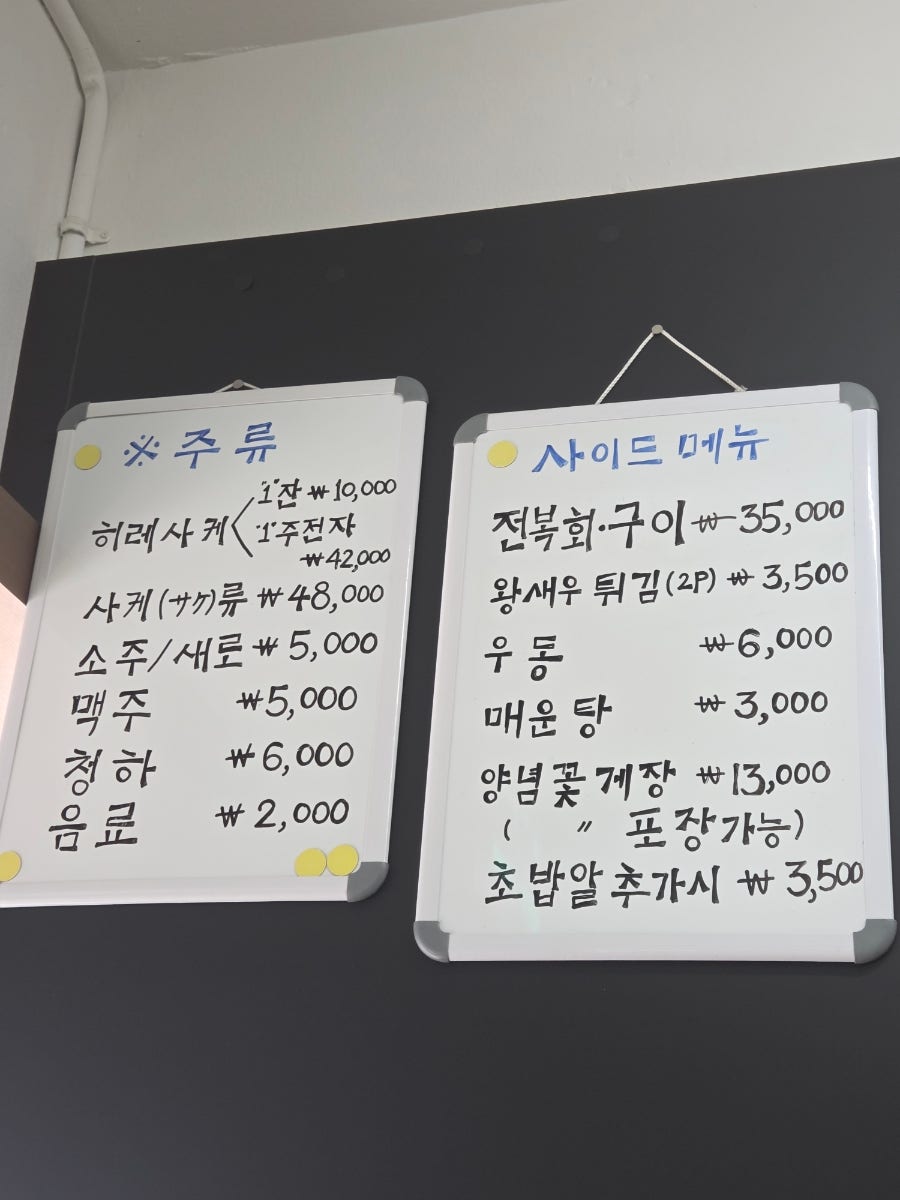 ※ 주류
히레사케 "1"잔 ₩10,000
"1"주전자
₩42,000
사케(サケ)류 ₩48,000
소주/새로 ₩5,000
맥주 ₩5,000
청하 ₩6,000
음료 ₩2,000
사이드 메뉴
전복회·구이 ₩35,000
왕새우 튀김(2P) ₩3,500
우동 ₩6,000
매운탕 ₩3,000
양념꽃게장 ₩13,000
( 〃 포장가능)
초밥알 추가시 ₩3,500